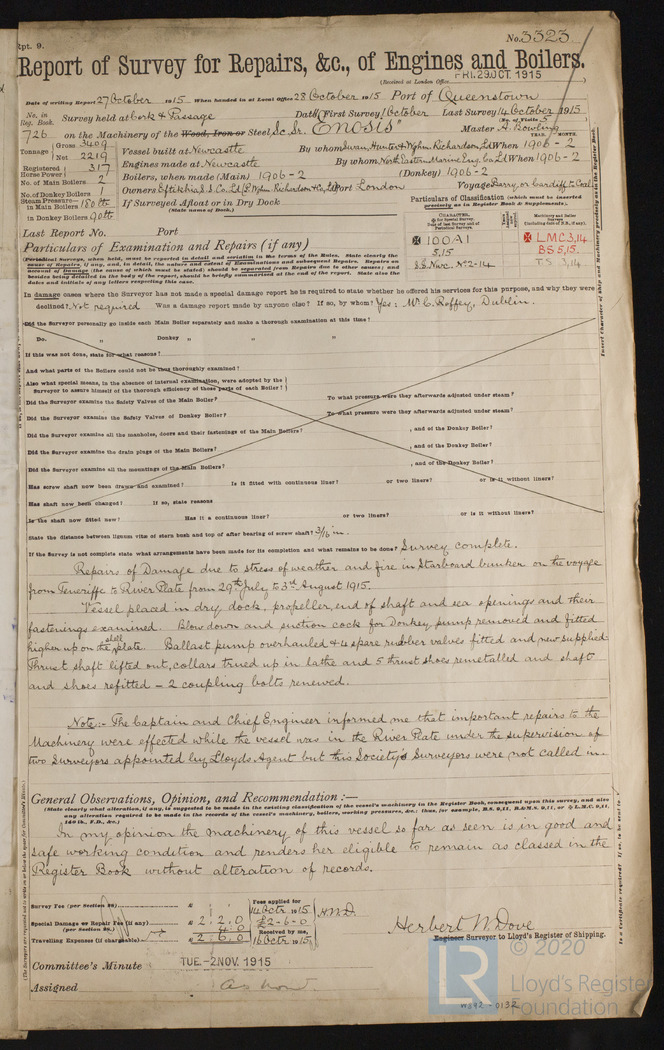 Rpt. 9.
No. 3323
Report of Survey for Repairs, &c., of Engines and Boilers.
(Received at London Office FRI. 29 OCT. 1915)
Date of writing Report 27 October 1915 When handed in at Local Office 28 October 1915 Port of Queenstown
No. in Reg. Book. Survey held at Cork & Passage Date: First Survey 1 October Last Survey 14 October 1915
(No. of Visits 5)
726 on the Machinery of the Wood, Iron or Steel Sc. Sr. "Enosis" Master H. Bowling
Tonnage Gross 3409 Net 2219 Vessel built at Newcastle By whom Swan, Hunter & Wigham Richardson, Ld When 1906 - 2
YEAR. MONTH.
Registered Horse Power 317 Engines made at Newcastle By whom North Eastern Marine Eng. Co Ld When 1906 - 2
No. of Main Boilers 2 Boilers, when made (Main) 1906 - 2 (Donkey) 1906 - 2
No. of Donkey Boilers 1 Owners Port London Voyage Barry, or Cardiff to Coal
Steam Pressure— in Main Boilers 180 lb If Surveyed Afloat or in Dry Dock
(State name of Dock.)
in Donkey Boilers 90 lb
Particulars of Classification (which must be inserted precisely as in Register Book & Supplements).
CHARACTER.
Machinery and Boiler Surveys
100A1
5,15
S.S. Nwc. No 2-14
LMC 3,14
BS 5,15.
TS 3,14
Last Report No. Port
Particulars of Examination and Repairs (if any)
(Periodical Surveys, when held, must be reported in detail and seriatim in the terms of the Rules. State clearly the cause of Repairs, if any, and, in detail, the nature and extent of Examinations and subsequent Repairs. Repairs on account of Damage (the cause of which must be stated) should be separated from Repairs due to other causes; and besides being detailed in the body of the report, should be briefly summarized at the end of the report. State also the dates and initials of any letters respecting this case.
In damage cases where the Surveyor has not made a special damage report he is required to state whether he offered his services for this purpose, and why they were
declined? Not required Was a damage report made by anyone else? If so, by whom? Yes: Mr C. Roffey, Dublin.
Did the Surveyor personally go inside each Main Boiler separately and make a thorough examination at this time?
Do. " Donkey " " "
If this was not done, state for what reasons?
And what parts of the Boilers could not be thus thoroughly examined?
Also what special means, in the absence of internal examination, were adopted by the Surveyor to assure himself of the thorough efficiency of those parts of each Boiler?
Did the Surveyor examine the Safety Valves of the Main Boiler? To what pressure were they afterwards adjusted under steam?
Did the Surveyor examine the Safety Valves of Donkey Boiler? To what pressure were they afterwards adjusted under steam?
Did the Surveyor examine all the manholes, doors and their fastenings of the Main Boilers? , and of the Donkey Boiler?
Did the Surveyor examine the drain plugs of the Main Boilers? , and of the Donkey Boiler?
Did the Surveyor examine all the mountings of the Main Boilers? , and of the Donkey Boiler?
Has screw shaft now been drawn and examined? Is it fitted with continuous liner? or two liners? or is it without liners?
Has shaft now been changed? If so, state reasons
Is the shaft now fitted new? Has it a continuous liner? or two liners? or is it without liners?
State the distance between lignum vitæ of stern bush and top of after bearing of screw shaft? 3/16 in.
If the Survey is not complete state what arrangements have been made for its completion and what remains to be done? Survey complete.
Repairs of Damage due to stress of weather and fire in Starboard bunker on the voyage
from Teneriffe to River Plate from 29th July to 3rd August 1915.
Vessel placed in dry dock, propeller, end of shaft and sea openings and their
fastenings examined. Blow down and suction cock for Donkey pump removed and fitted
higher up on the shell plate. Ballast pump overhauled & 4 spare rubber valves fitted and new supplied
Thrust shaft lifted out, collars trued up in lathe and 5 thrust shoes remetalled and shaft
and shoes refitted - 2 coupling bolts renewed.
Note:- The Captain and Chief Engineer informed me that important repairs to the
Machinery were effected while the vessel was in the River Plate under the supervision of
two Surveyors appointed by Lloyds Agent but this Society's Surveyors were not called in.
General Observations, Opinion, and Recommendation :—
(State clearly what alteration, if any, is suggested to be made in the existing classification of the vessel's machinery in the Register Book, consequent upon this survey, and also any alteration required to be made in the records of the vessel's machinery, boilers, working pressures, &c.; thus, for example, B.S. 9,11, B&M.S. 9,11, or L.M.C. 9,11, 180 lb., F.D., &c.)
In my opinion the machinery of this vessel so far as seen is in good and
safe working condition and renders her eligible to remain as classed in the
Register Book without alteration of records.
Survey Fee (per Section 28) £
Special Damage or Repair Fee (if any) (per Section 28.) £ 2 : 2 . 0
4 : 0
Travelling Expenses (if chargeable) £ 2 : 6 . 0
Fees applied for
14 Octr 1915
£2-6-0
Received by me,
16 Octr 1915
H.W.D.
Herbert W. Dove
Engineer Surveyor to Lloyd's Register of Shipping.
Committee's Minute TUE. -2 NOV. 1915
Assigned As now
© 2020
LR
Lloyd's Register
Foundation
W892 - 0132